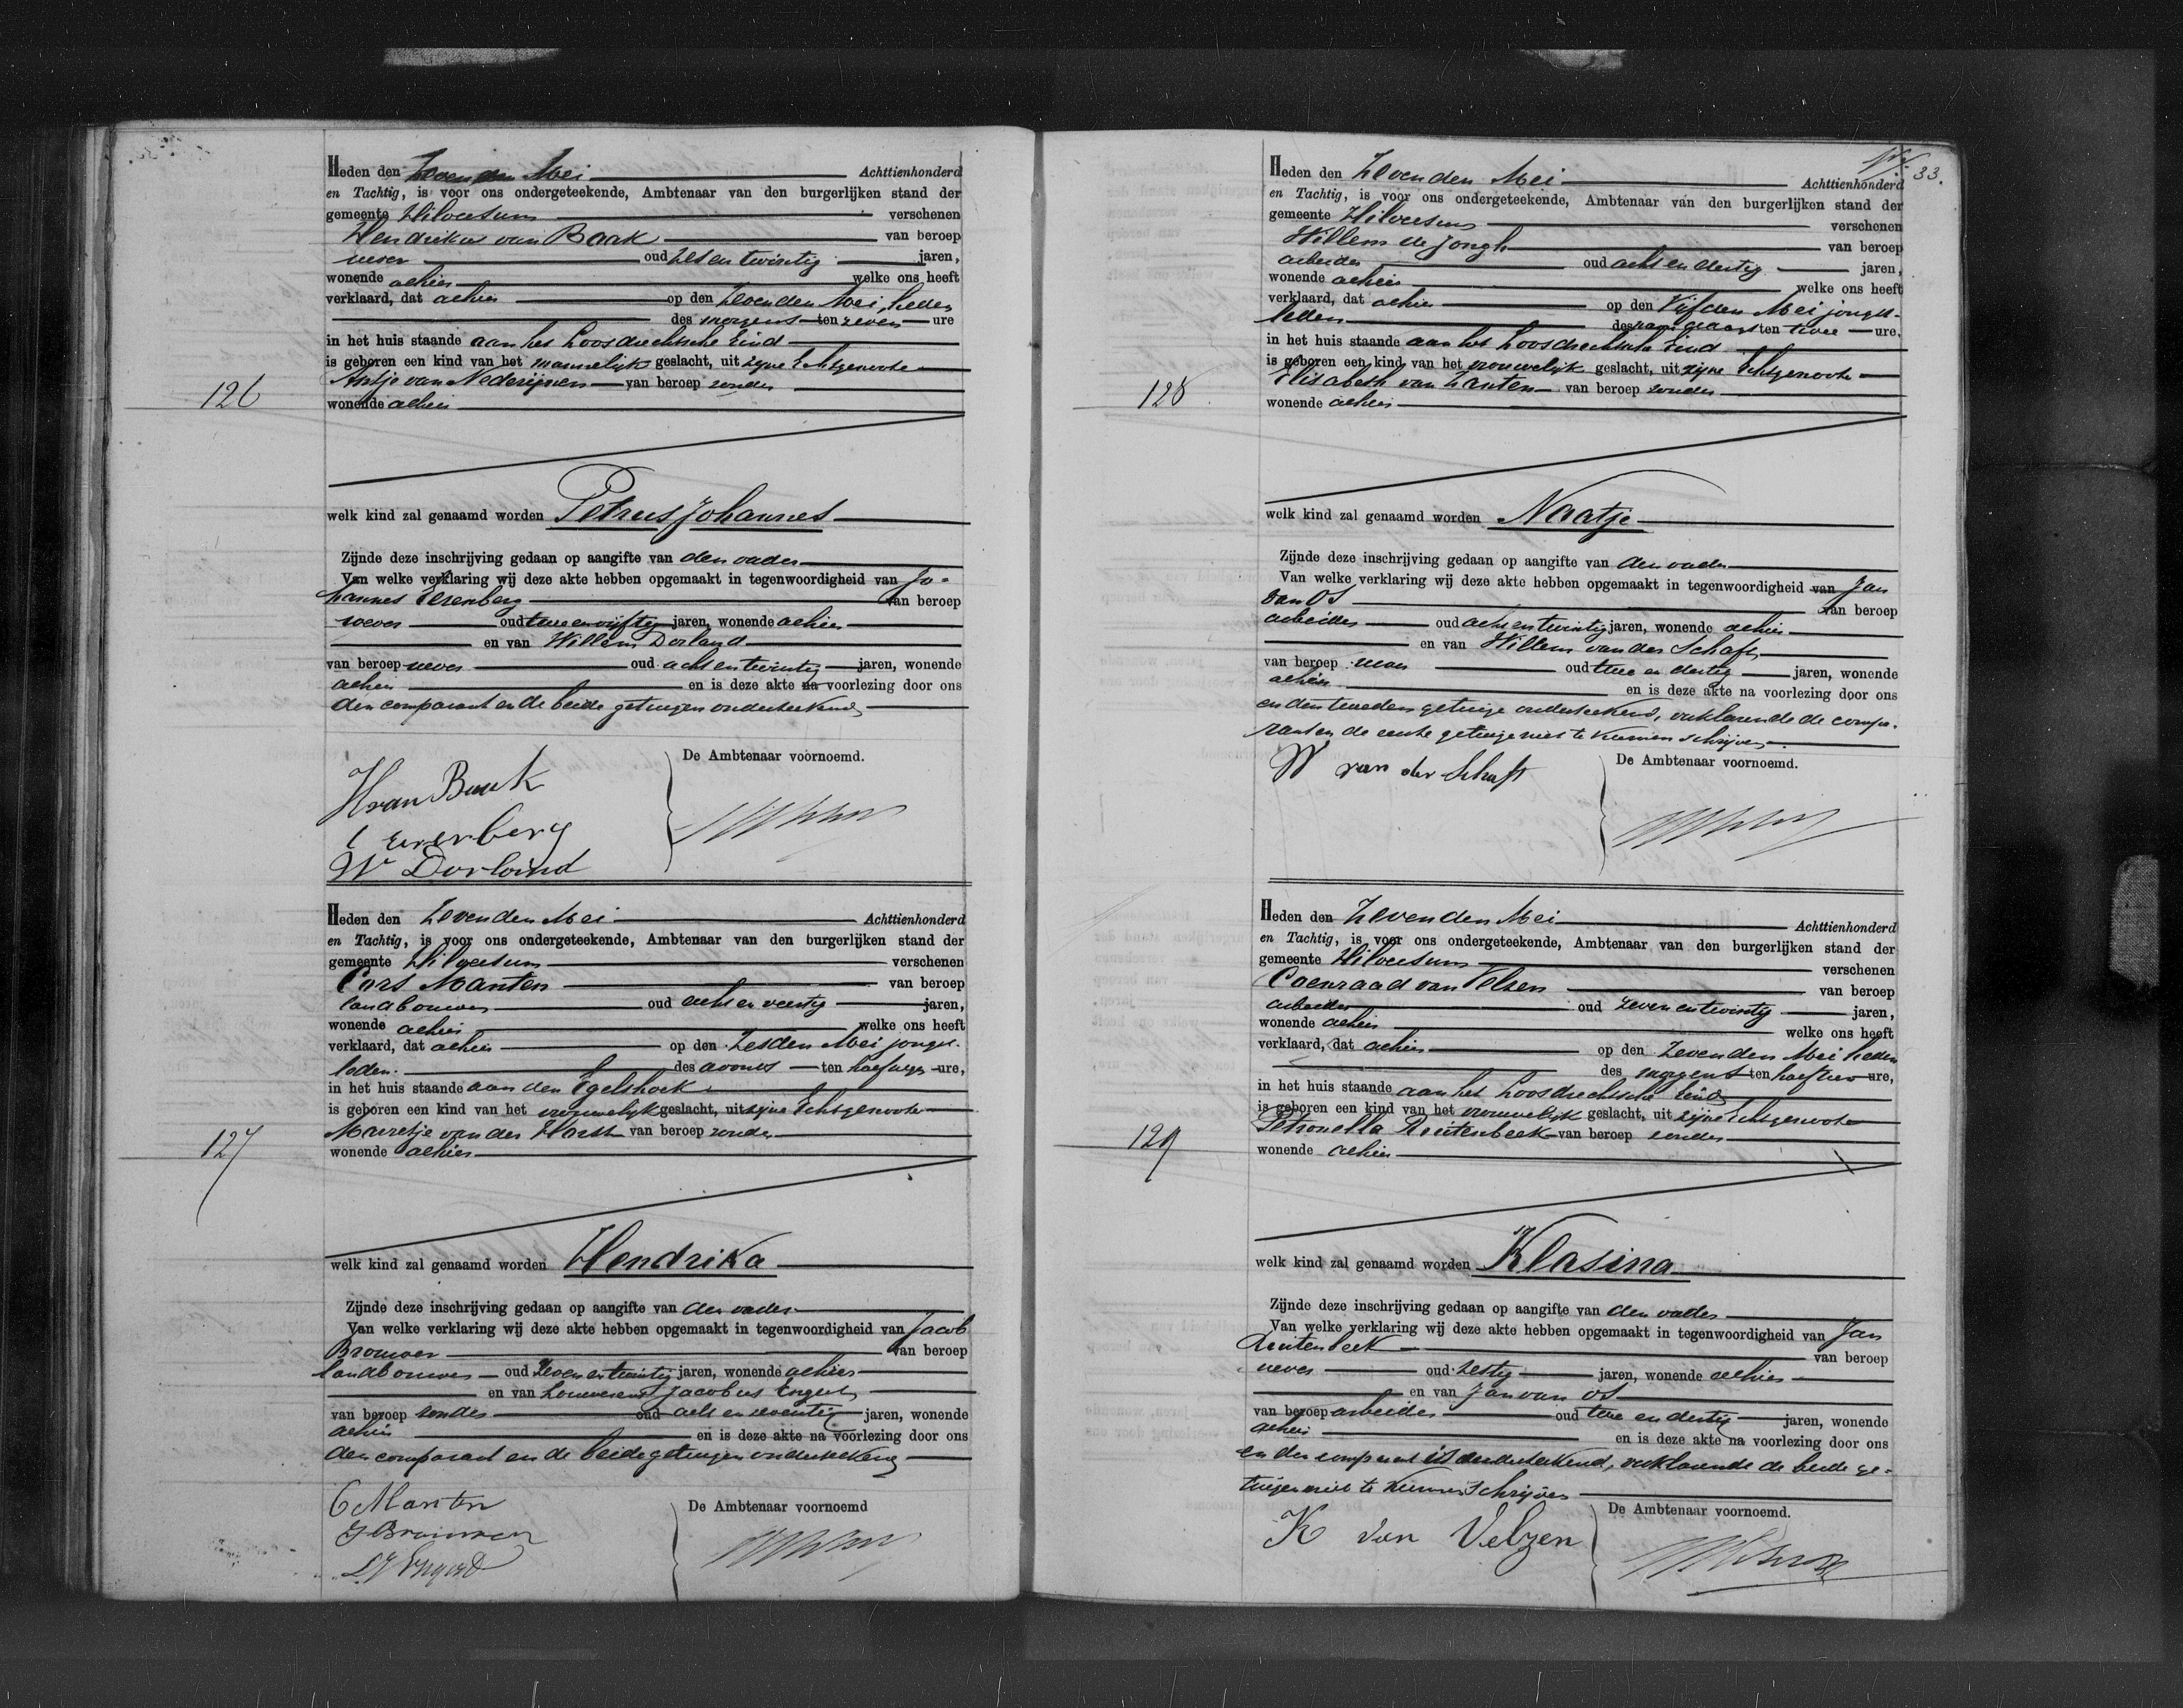 Heden den Zevenden Mei Achttienhonderd
en Tachtig, is voor ons ondergeteekende, Ambtenaar van den burgerlijken stand der
gemeente Hilversum verschenen
Hendrikus van Baak van beroep
wever oud zes en twintig jaren,
wonende alhier welke ons heeft
verklaard, dat alhier op den Zevenden Mei, heden
des morgens ten zeven ure
in het huis staande aan het Loosdrechtsche Eind
is geboren een kind van het mannelijk geslacht, uit zijne Echtgenoote
Antje van Nederijnen van beroep zonder
126
wonende alhier
welk kind zal genaamd worden Petrus Johannes
Zijnde deze inschrijving gedaan op aangifte van den vader
Van welke verklaring wij deze akte hebben opgemaakt in tegenwoordigheid van Jo-
hannes Eerenberg van beroep
wever oud twee en vijftig jaren, wonende alhier
en van Willem Dorland
van beroep wever oud acht en twintig jaren, wonende
alhier en is deze akte na voorlezing door ons
den comparant en de beide getuigen onderteekend
De Ambtenaar voornoemd.
H van Baak
Eerenberg
W Dorland
Heden den Zevenden Mei Achttienhonderd
en Tachtig, is voor ons ondergeteekende, Ambtenaar van den burgerlijken stand der
gemeente Hilversum verschenen
Cors Manten van beroep
landbouwer oud acht en veertig jaren,
wonende alhier welke ons heeft
verklaard, dat alhier op den Zesden Mei jongst-
leden des avonds ten half ure,
in het huis staande aan den Egelshoek
is geboren een kind van het vrouwelijk geslacht, uit zijne Echtgenoote
Marretje van der Horst van beroep zonder
127
wonende alhier
welk kind zal genaamd worden Hendrika
Zijnde deze inschrijving gedaan op aangifte van den vader
Van welke verklaring wij deze akte hebben opgemaakt in tegenwoordigheid van Jacob
Brouwer van beroep
landbouwer oud zeven en twintig jaren, wonende alhier
en van Louwerens Jacobus Engert
van beroep zonder oud acht en zeventig jaren, wonende
alhier en is deze akte na voorlezing door ons
den comparant en de beide getuigen onderteekend
De Ambtenaar voornoemd
C Manten
J Brouwer
L J Engerd
33.
Heden den Zevenden Mei Achttienhonderd
en Tachtig, is voor ons ondergeteekende, Ambtenaar van den burgerlijken stand der
gemeente Hilversum verschenen
Willem de Jongh van beroep
arbeider oud acht en dertig jaren,
wonende alhier welke ons heeft
verklaard, dat alhier op den Vijfden Mei jongst-
leden des namiddags ten twee ure,
in het huis staande aan het Loosdrechtsche Eind
is geboren een kind van het vrouwelijk geslacht, uit zijne Echtgenoote
Elisabeth van Zanten van beroep zonder
128
wonende alhier
welk kind zal genaamd worden Naatje
Zijnde deze inschrijving gedaan op aangifte van den vader
Van welke verklaring wij deze akte hebben opgemaakt in tegenwoordigheid van Jan
van Os van beroep
arbeider oud acht en twintig jaren, wonende alhier
en van Willem van der Schaft
van beroep wever oud twee en dertig jaren, wonende
alhier en is deze akte na voorlezing door ons
en den tweeden getuige onderteekend, verklarende de compa-
rant en de eerste getuige niet te kunnen schrijven
De Ambtenaar voornoemd.
W van der Schaft
Heden den Zevenden Mei Achttienhonderd
en Tachtig, is voor ons ondergeteekende, Ambtenaar van den burgerlijken stand der
gemeente Hilversum verschenen
Coenraad van Velsen van beroep
arbeider oud zeven en twintig jaren,
wonende alhier welke ons heeft
verklaard, dat alhier op den Zevenden Mei heden
des morgens ten half tien ure,
in het huis staande aan het Loosdrechtsche Eind
is geboren een kind van het vrouwelijk geslacht, uit zijne Echtgenoote
Petronella Ruitenbeek van beroep zonder
129
wonende alhier
welk kind zal genaamd worden Klasina
Zijnde deze inschrijving gedaan op aangifte van den vader
Van welke verklaring wij deze akte hebben opgemaakt in tegenwoordigheid van Jan
Ruitenbeek van beroep
wever oud zestig jaren, wonende alhier
en van Jan van Os
van beroep arbeider oud twee en dertig jaren, wonende
alhier en is deze akte na voorlezing door ons
en den comparant is onderteekend, verklarende de beide ge-
tuigen niet te kunnen schrijven
De Ambtenaar voornoemd.
K van Velzen